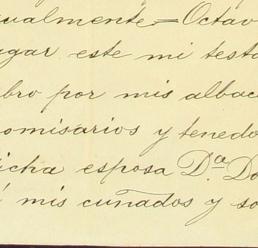 ualmente = Octav
ugar este mi testa
bro por mis albac
omisarios y tenedo
icha esposa D.ª Do
í mis cuñados y so